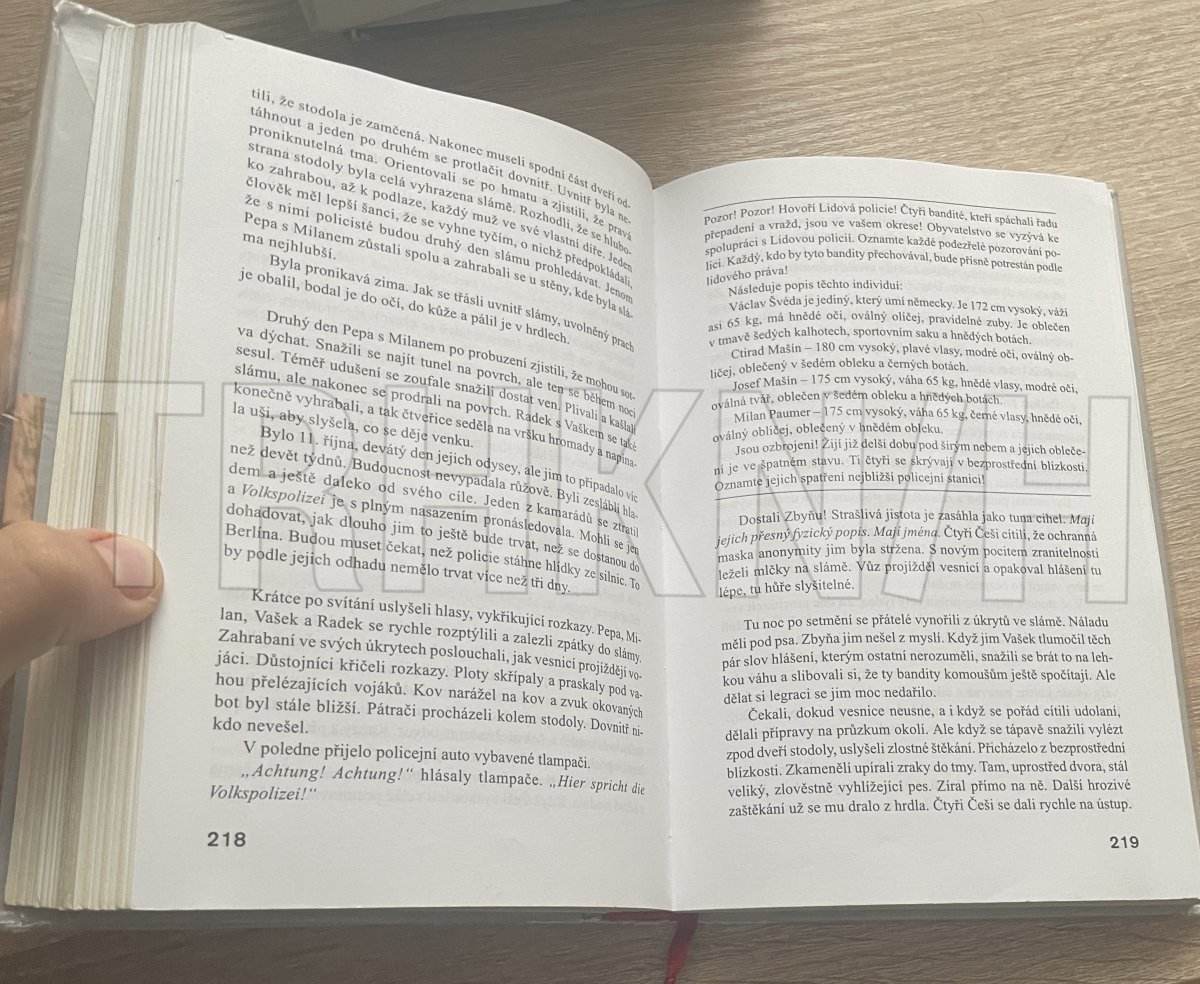 tili, že stodola je zamčená. Nakonec museli spodní část dveří od-
táhnout a jeden po druhém se protlačit dovnitř. Uvnitř byla ne-
proniknutelná tma. Orientovali se po hmatu a zjistili, že pravá
strana stodoly byla celá vyhrazena slámě. Rozhodli, že se hlubo-
ko zahrabou, až k podlaze, každý muž ve své vlastní díře. Jeden
člověk měl lepší šanci, že se vyhne tyčím, o nichž předpokládali,
že s nimi policisté budou druhý den slámu prohledávat. Jenom
Pepa s Milanem zůstali spolu a zahrabali se u stěny, kde byla slá-
ma nejhlubší.
Byla pronikavá zima. Jak se třásli uvnitř slámy, uvolněný prach
je obalil, bodal je do očí, do kůže a pálil je v hrdlech.
Druhý den Pepa s Milanem po probuzení zjistili, že mohou sot-
va dýchat. Snažili se najít tunel na povrch, ale ten se během noci
sesul. Téměř udušení se zoufale snažili dostat ven. Plivali a kašlali
slámu, ale nakonec se prodrali na povrch. Radek s Vaškem se také
konečně vyhrabali, a tak čtveřice seděla na vršku hromady a napína-
la uši, aby slyšela, co se děje venku.
Bylo 11. října, devátý den jejich odysey, ale jim to připadalo víc
než devět týdnů. Budoucnost nevypadala růžově. Byli zesláblí hla-
dem a ještě daleko od svého cíle. Jeden z kamarádů se ztratil
a Volkspolizei je s plným nasazením pronásledovala. Mohli se jen
dohadovat, jak dlouho jim to ještě bude trvat, než se dostanou do
Berlína. Budou muset čekat, než policie stáhne hlídky ze silnic. To
by podle jejich odhadu nemělo trvat více než tři dny.
Krátce po svítání uslyšeli hlasy, vykřikující rozkazy. Pepa, Mi-
lan, Vašek a Radek se rychle rozptýlili a zalezli zpátky do slámy.
Zahrabaní ve svých úkrytech poslouchali, jak vesnicí projíždějí vo-
jáci. Důstojníci křičeli rozkazy. Ploty skřípaly a praskaly pod va-
hou přelézajících vojáků. Kov narážel na kov a zvuk okovaných
bot byl stále bližší. Pátrači procházeli kolem stodoly. Dovnitř ni-
kdo nevešel.
V poledne přijelo policejní auto vybavené tlampači.
„Achtung! Achtung!“ hlásaly tlampače. „Hier spricht die
Volkspolizei!“
218
Pozor! Pozor! Hovoří Lidová policie! Čtyři bandité, kteří spáchali řadu
přepadení a vražd, jsou ve vašem okrese! Obyvatelstvo se vyzývá ke
spolupráci s Lidovou policií. Oznamte každé podezřelé pozorování po-
lici. Každý, kdo by tyto bandity přechovával, bude přísně potrestán podle
lidového práva!
Následuje popis těchto individuí:
Václav Švéda je jediný, který umí německy. Je 172 cm vysoký, váží
asi 65 kg, má hnědé oči, oválný oličej, pravidelné zuby. Je oblečen
v tmavě šedých kalhotech, sportovním saku a hnědých botách.
Ctirad Mašín – 180 cm vysoký, plavé vlasy, modré oči, oválný ob-
ličej, oblečený v šedém obleku a černých botách.
Josef Mašín – 175 cm vysoký, váha 65 kg, hnědé vlasy, modré oči,
oválná tvář, oblečen v šedém obleku a hnědých botách.
Milan Paumer – 175 cm vysoký, váha 65 kg, černé vlasy, hnědé oči,
oválný obličej, oblečený v hnědém obleku.
Jsou ozbrojeni! Žijí již delší dobu pod širým nebem a jejich obleče-
ní je ve špatném stavu. Ti čtyři se skrývají v bezprostřední blízkosti.
Oznamte jejich spatření nejbližší policejní stanici!
Dostali Zbyňu! Strašlivá jistota je zasáhla jako tuna cihel. Mají
jejich přesný fyzický popis. Mají jména. Čtyři Češi cítili, že ochranná
maska anonymity jim byla stržena. S novým pocitem zranitelnosti
leželi mlčky na slámě. Vůz projížděl vesnicí a opakoval hlášení tu
lépe, tu hůře slyšitelné.
Tu noc po setmění se přátelé vynořili z úkrytů ve slámě. Náladu
měli pod psa. Zbyňa jim nešel z mysli. Když jim Vašek tlumočil těch
pár slov hlášení, kterým ostatní nerozuměli, snažili se brát to na leh-
kou váhu a slibovali si, že ty bandity komoušům ještě spočítají. Ale
dělat si legraci se jim moc nedařilo.
Čekali, dokud vesnice neusne, a i když se pořád cítili udolaní,
dělali přípravy na průzkum okolí. Ale když se tápavě snažili vylézt
zpod dveří stodoly, uslyšeli zlostné štěkání. Přicházelo z bezprostřední
blízkosti. Zkamenělí upírali zraky do tmy. Tam, uprostřed dvora, stál
veliký, zlověstně vyhlížející pes. Zíral přímo na ně. Další hrozivé
zaštěkání už se mu dralo z hrdla. Čtyři Češi se dali rychle na ústup.
219
TRHKNIH